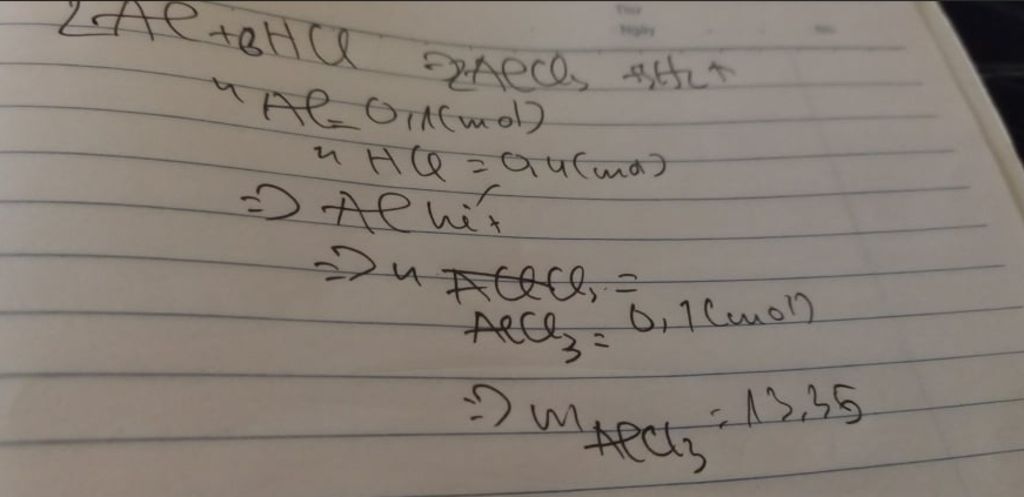 2Al + 6HCl → 2AlCl3 + 3H2↑
n Al = 0,1(mol)
n HCl = 0,4(mol)
=> Al hết
=> n
AlCl3 = 0,1(mol)
=> m AlCl3 = 13,35